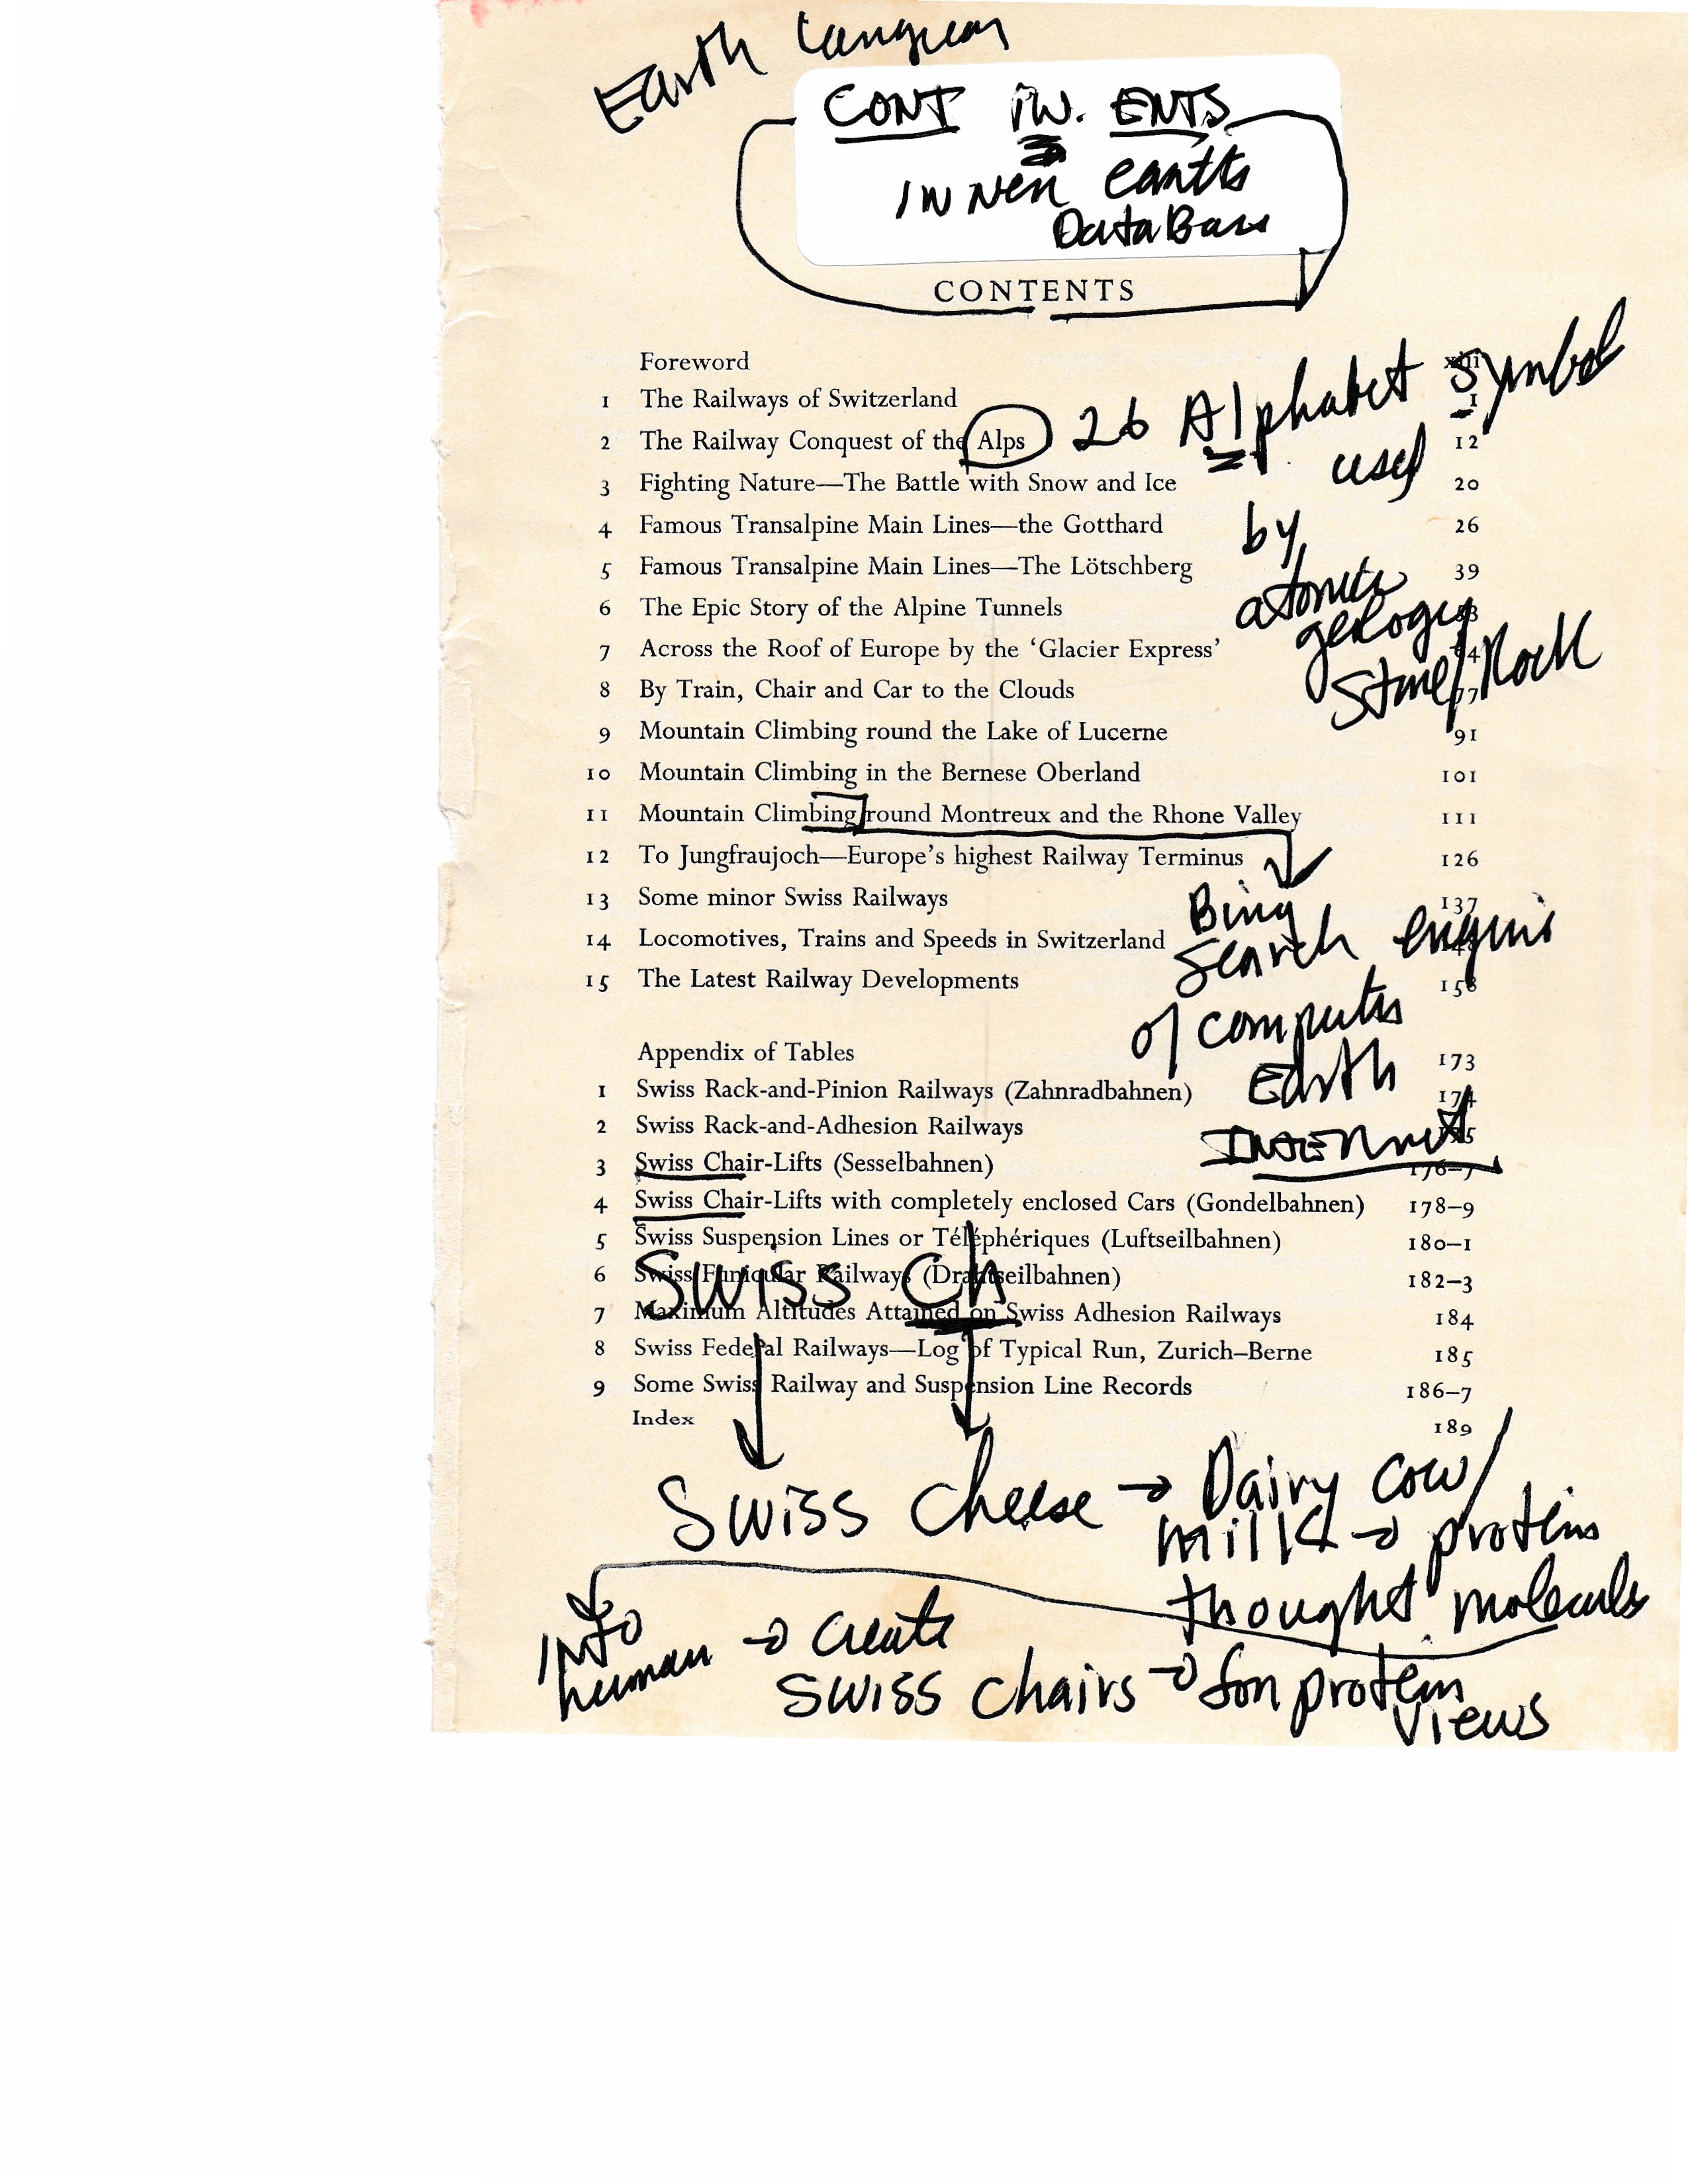 Earth Languag
CONT IN. ENTS
INNER earths
DataBase
CONTENTS
Foreword xiii
1 The Railways of Switzerland 1
2 The Railway Conquest of the Alps 12
26 Alphabet Symbol
used
3 Fighting Nature—The Battle with Snow and Ice 20
4 Famous Transalpine Main Lines—the Gotthard 26
by
5 Famous Transalpine Main Lines—The Lötschberg 39
atomic
6 The Epic Story of the Alpine Tunnels
geology
7 Across the Roof of Europe by the ‘Glacier Express’
Stone/Rock
8 By Train, Chair and Car to the Clouds
9 Mountain Climbing round the Lake of Lucerne 91
10 Mountain Climbing in the Bernese Oberland 101
11 Mountain Climbing round Montreux and the Rhone Valley 111
12 To Jungfraujoch—Europe’s highest Railway Terminus 126
13 Some minor Swiss Railways 137
Bing
14 Locomotives, Trains and Speeds in Switzerland
Search engine
15 The Latest Railway Developments 158
of computer
Appendix of Tables 173
Earth
1 Swiss Rack-and-Pinion Railways (Zahnradbahnen) 174
2 Swiss Rack-and-Adhesion Railways
Internet
3 Swiss Chair-Lifts (Sesselbahnen) 176–7
4 Swiss Chair-Lifts with completely enclosed Cars (Gondelbahnen) 178–9
5 Swiss Suspension Lines or Téléphériques (Luftseilbahnen) 180–1
6 Swiss Funicular Railways (Drahtseilbahnen) 182–3
Swiss Ch
7 Maximum Altitudes Attained on Swiss Adhesion Railways 184
8 Swiss Federal Railways—Log of Typical Run, Zurich–Berne 185
9 Some Swiss Railway and Suspension Line Records 186–7
Index 189
Swiss Cheese → Dairy cow/
milk → protein
thought molecules
INTO
human → create
swiss chairs → for protein
views